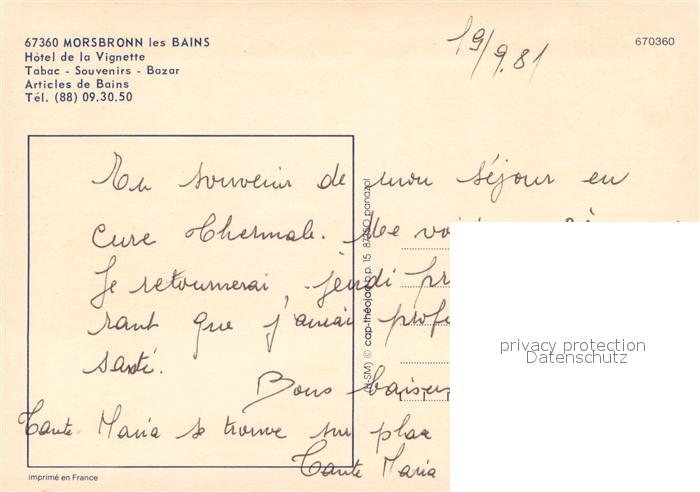 67360 MORSBRONN les BAINS
Hôtel de la Vignette
Tabac - Souvenirs - Bazar
Articles de Bains
Tél. (88) 09.30.50
19/9.81
670360
En souvenir de mon séjour en
cure thermale. Me
Je retournerai, jeudi
rant que j'aurai
santé.
Bons baisers
Tante Maria se trouve sur place
Tante Maria
cap-théojac
panazol
privacy protection
Datenschutz
imprimé en France